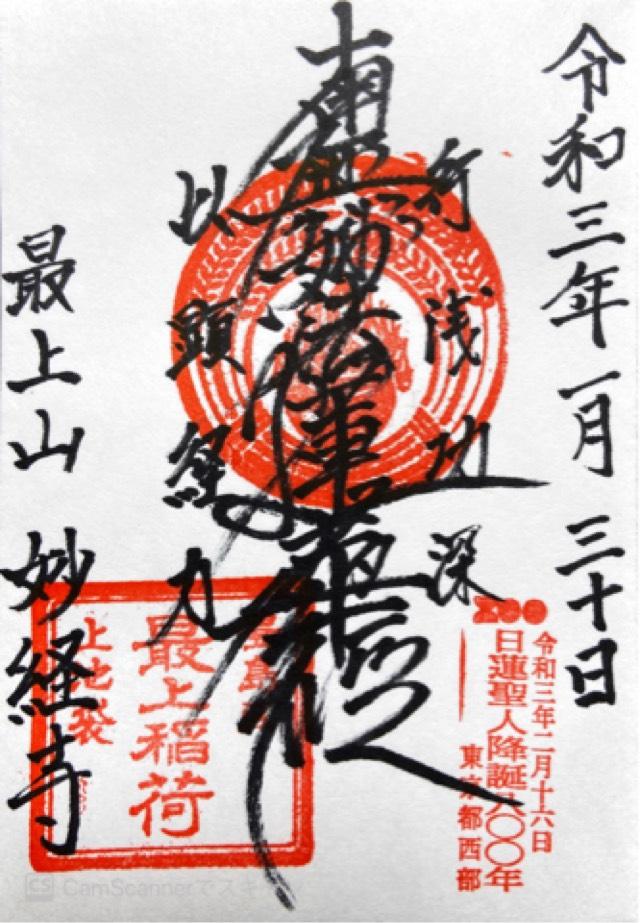 令和三年一月三十日
行浅功深
南無妙法蓮華経
以顕経力
最上山 妙経寺
令和三年二月十六日
日蓮聖人降誕八〇〇年
東京都西部
最上稲荷
上池袋
CS CamScannerでスキャン